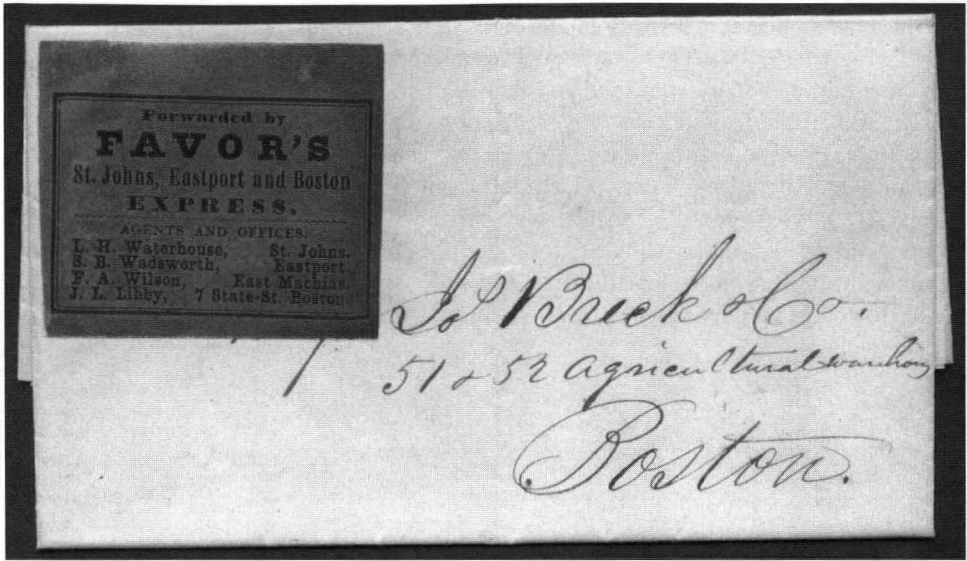 Forwarded by
FAVOR'S
St. Johns, Eastport and Boston
EXPRESS.
AGENTS AND OFFICES.
L. H. Waterhouse, St. Johns.
S. B. Wadsworth, Eastport.
F. A. Wilson, East Machias.
J. L. Libby, 7 State-St. Boston
Jos Breck & Co.
51 & 52 Agricultural
Boston.